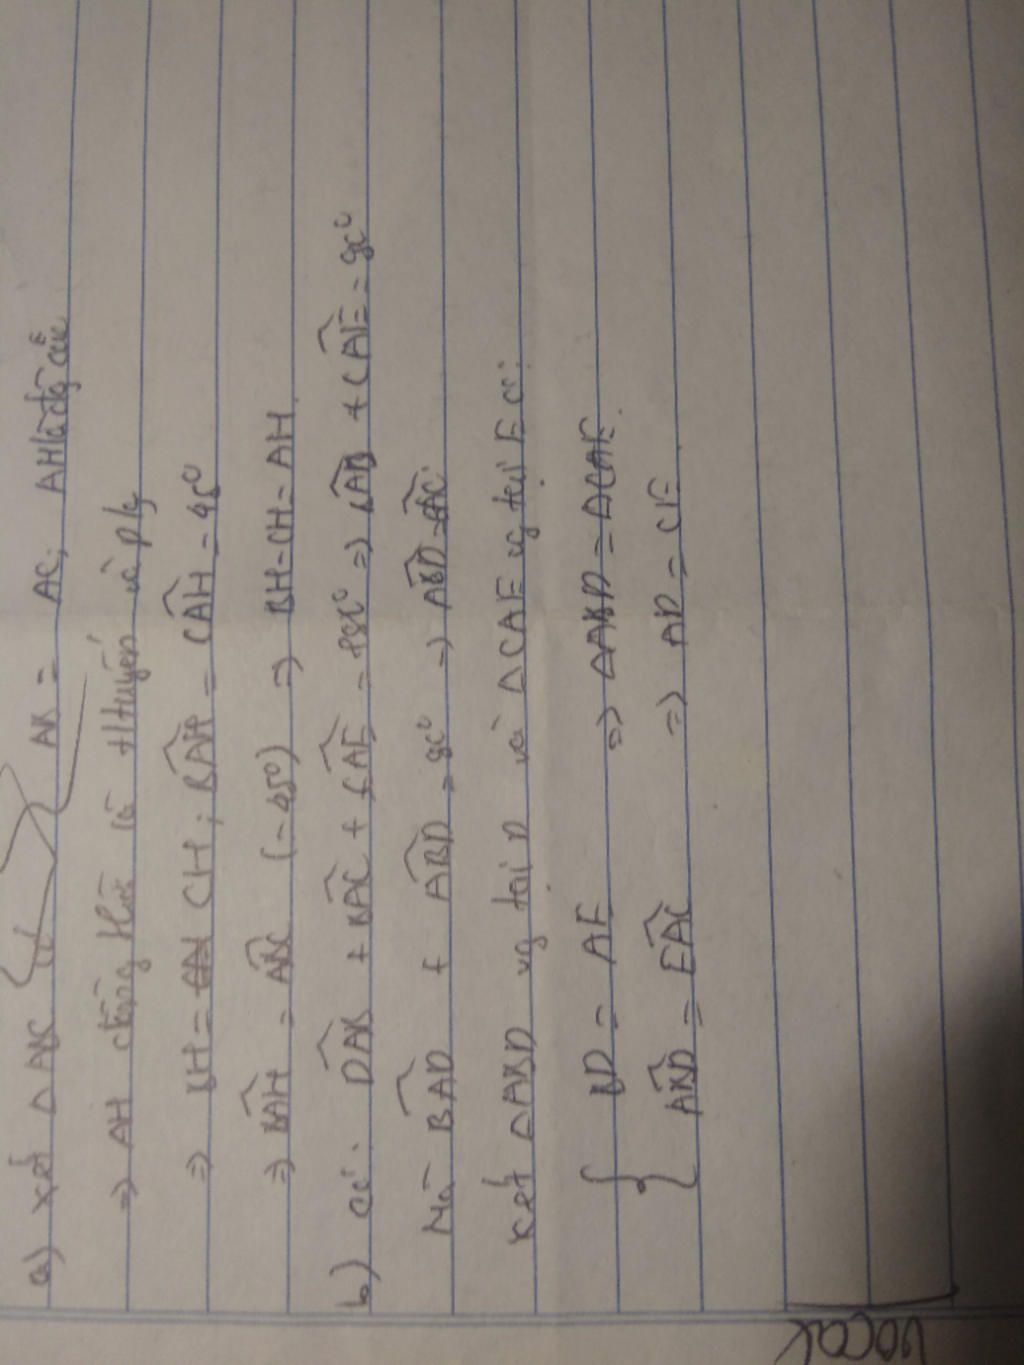 a) xét Δ ABC có AB = AC; AH là đg cao
=> AH đồng thời là tℓtuyến và p/g
=> BH = CH; BAH = CAH = 45°
=> BAH = ABC (= 45°) => BH = CH = AH.
b) có: DAB + BAC + CAE = 180° => BAD + CAE = 90°
Mà BAD + ABD = 90° => ABD = EAC.
xét Δ ABD vg tại D và Δ CAE vg tại E có:
BD = AE => ΔABD = ΔCAE.
ABD = EAC => AD = CE